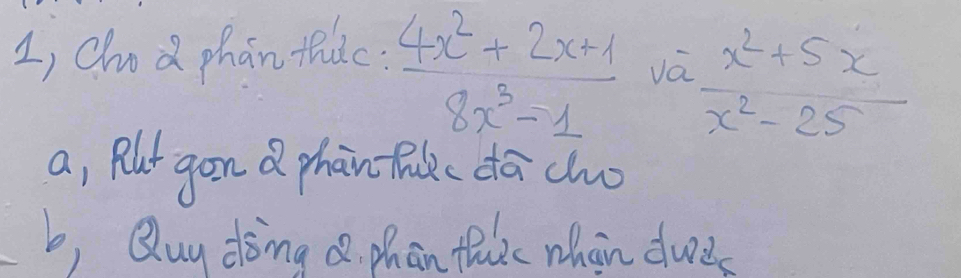 1, Cho 2 phân thức: (4x² + 2x+1)/(8x³ - 1) và (x² + 5x)/(x² - 25)
a, Rút gọn 2 phân thức đã cho
b, Quy đồng 2 phân thức nhận được